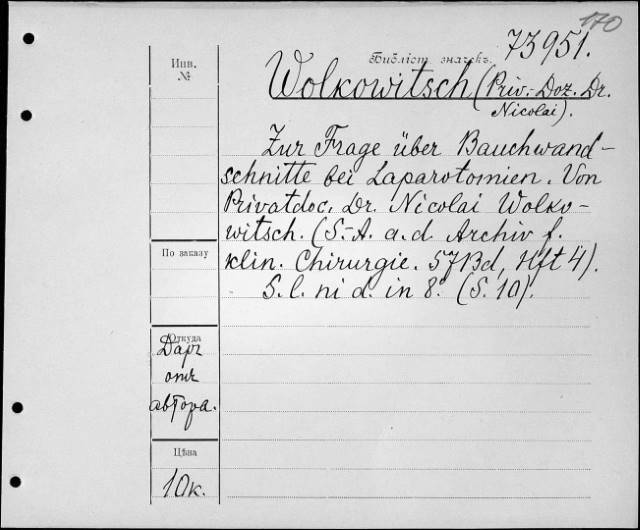 170
73951.
Инв.
№
Библіот. значекъ.
Wolkowitsch (Priv.-Doz. Dr.
Nicolai).
Zur Frage über Bauchwand-
schnitte bei Laparotomien. Von
Privatdoc. Dr. Nicolai Wolko-
witsch. (S.-A. a. d. Archiv f.
klin. Chirurgie. 57Bd, Hft 4).
S. l. ni d. in 8°. (S. 10).
По заказу
Откуда
Даръ
отъ
автора.
Цѣна
10к.